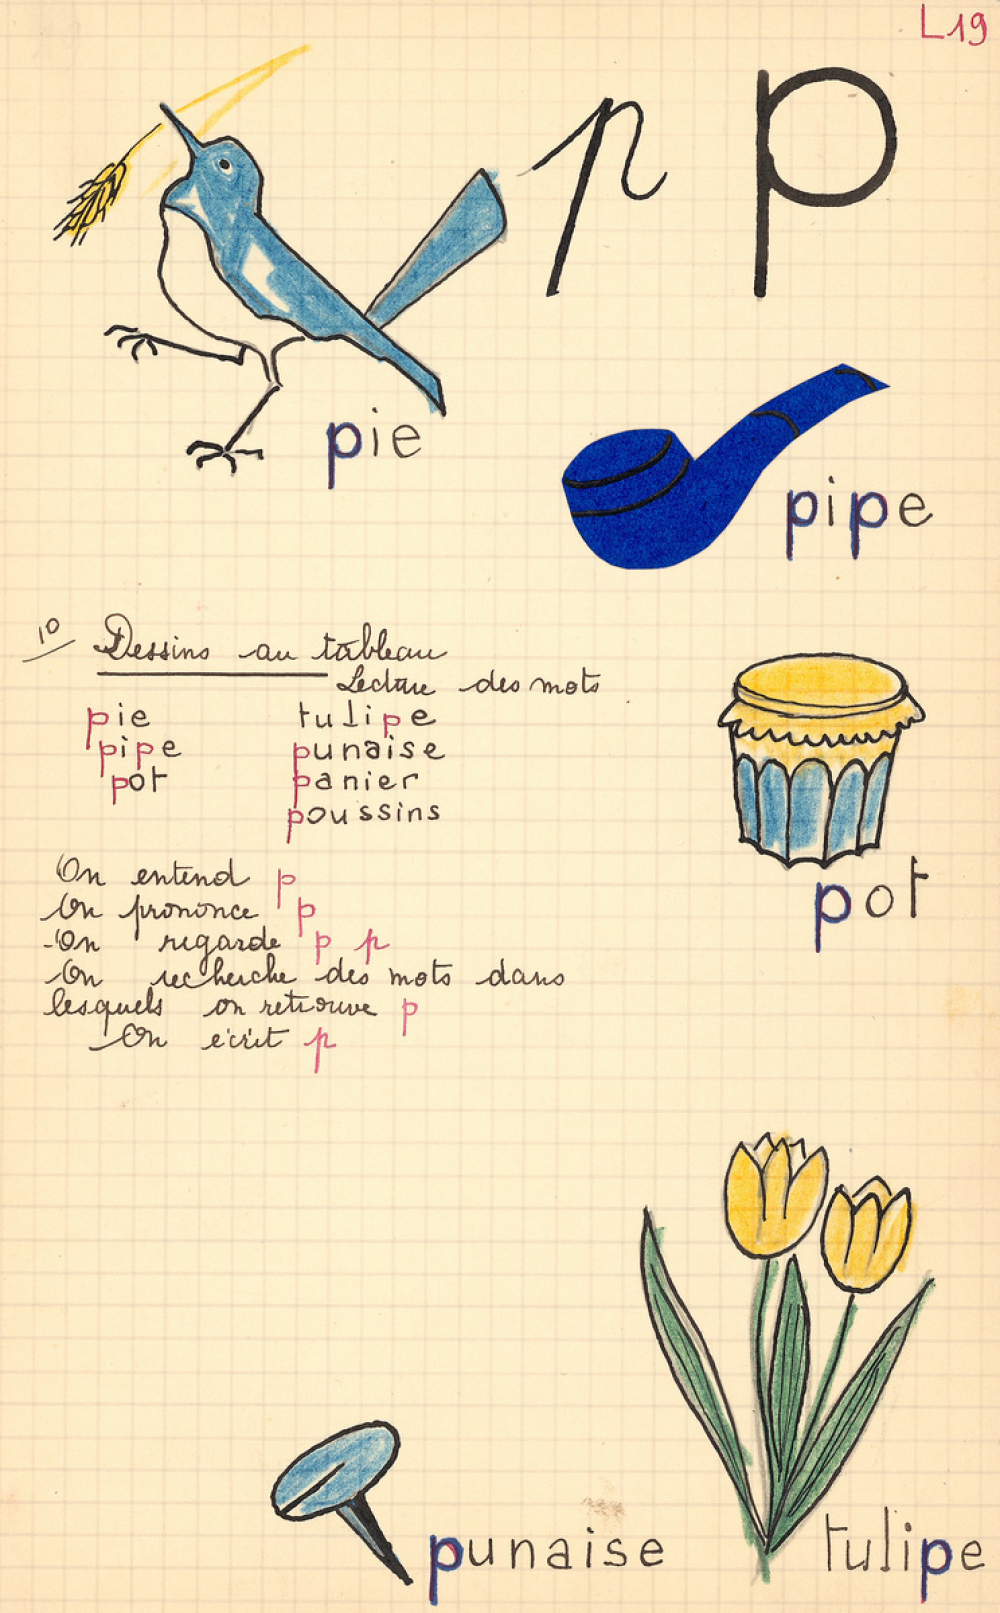 L19
p p
pie
pipe
1º/ Dessins au tableau
Lecture des mots
pie tulipe
pipe punaise
pot panier
poussins
pot
On entend p
On prononce p
On regarde p p
On recherche des mots dans
lesquels on retrouve p
On écrit p
punaise
tulipe